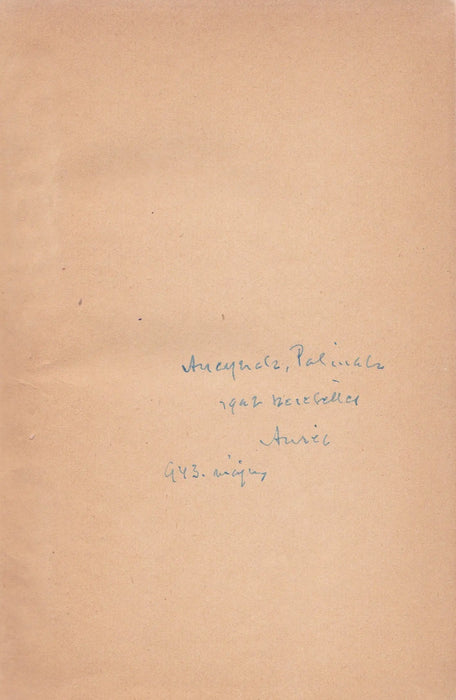 Aneynak, Palinak
igaz szeretettel
Aurél
943. május